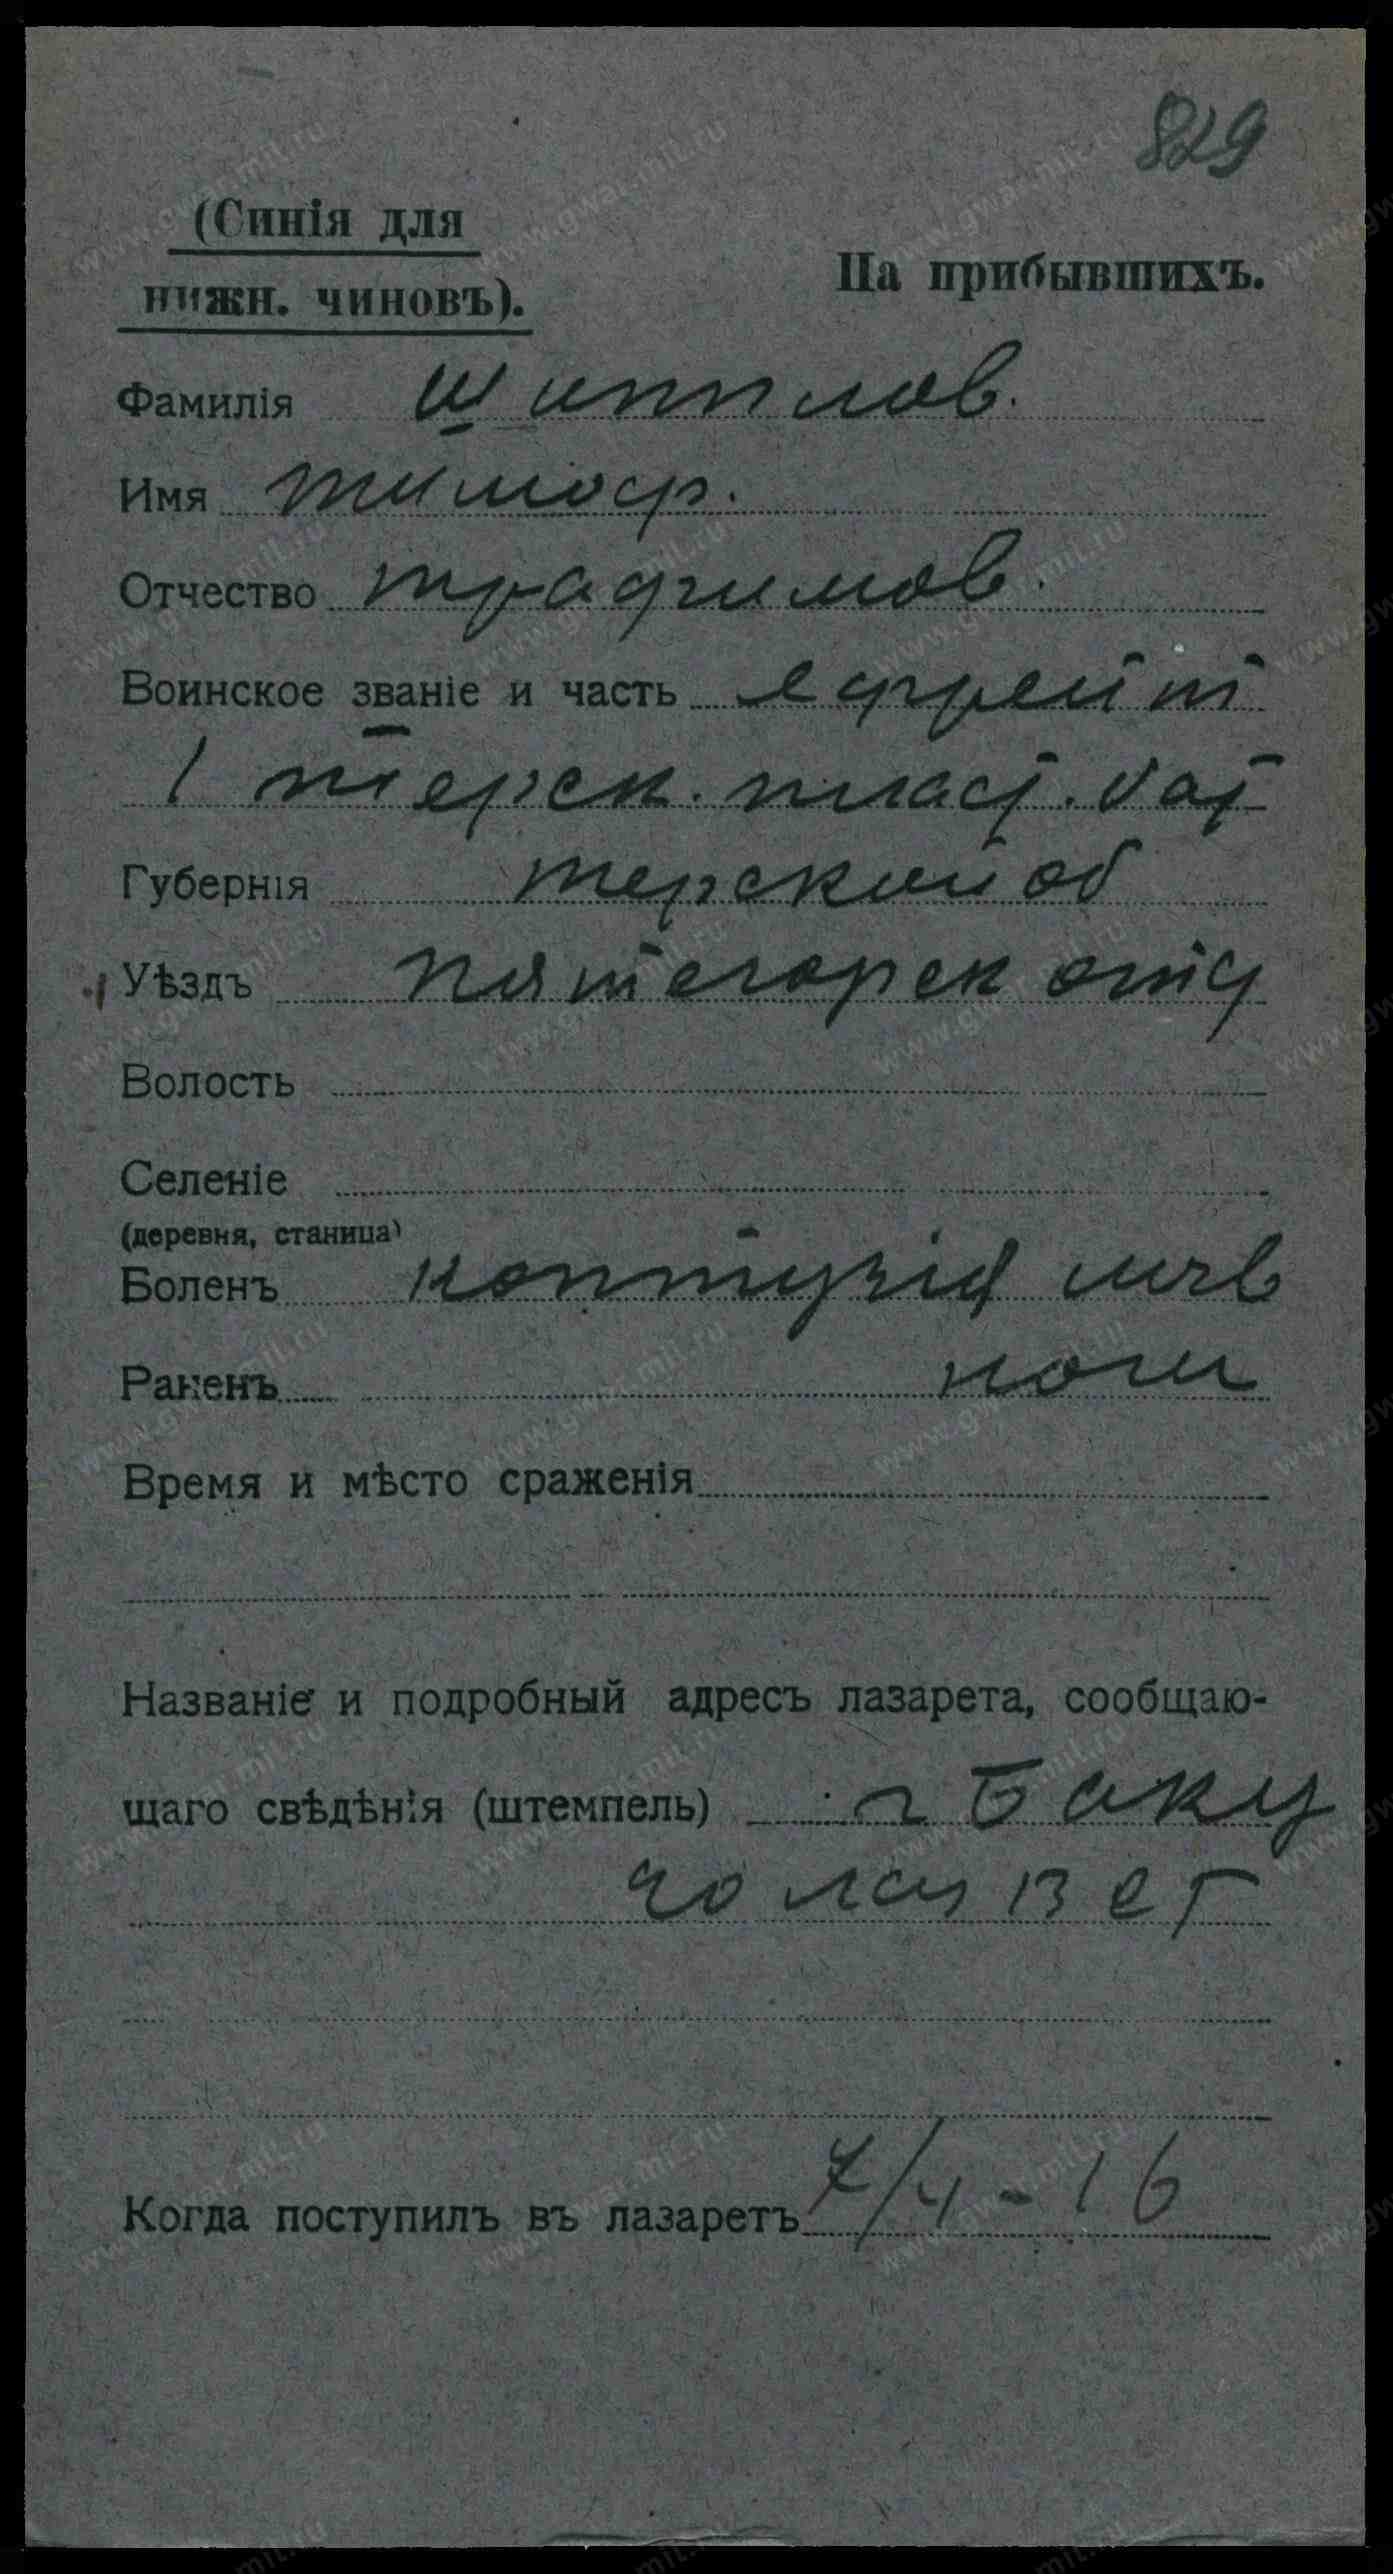 829
(Синія для
нижн. чиновъ).
На прибывшихъ.
Фамилія Шипплов.
Имя тимоф.
Отчество трафимов.
Воинское званіе и часть ефрейт
1 терск. пласт. бат
Губернія терской об
Уѣздъ пятегорск отд
Волость
Селеніе
(деревня, станица)
Боленъ контузія лев
Раненъ ноги
Время и мѣсто сраженія
Названіе и подробный адресъ лазарета, сообщаю-
щаго свѣдѣнія (штемпель) г Баку
7/4-16
Когда поступилъ въ лазаретъ